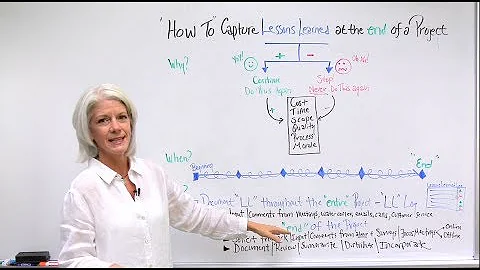 "How To" Capture Lessons Learned at the end of a Project
Why?
+ -
Continue
Do This Again
Stop
Never Do This again
Cost
Time
Scope
Quality
"Process"
Morale
When?
Beginning
"End"
Document "LL" throughout the "entire" Project - "LL" Log
Comments from Meetings, watercooler, emails, calls, Customer Service
"end" of the Project
Input | Comments from
Surveys
Online
Offline
Document | Review | Summarize | Distribute | Incorporate